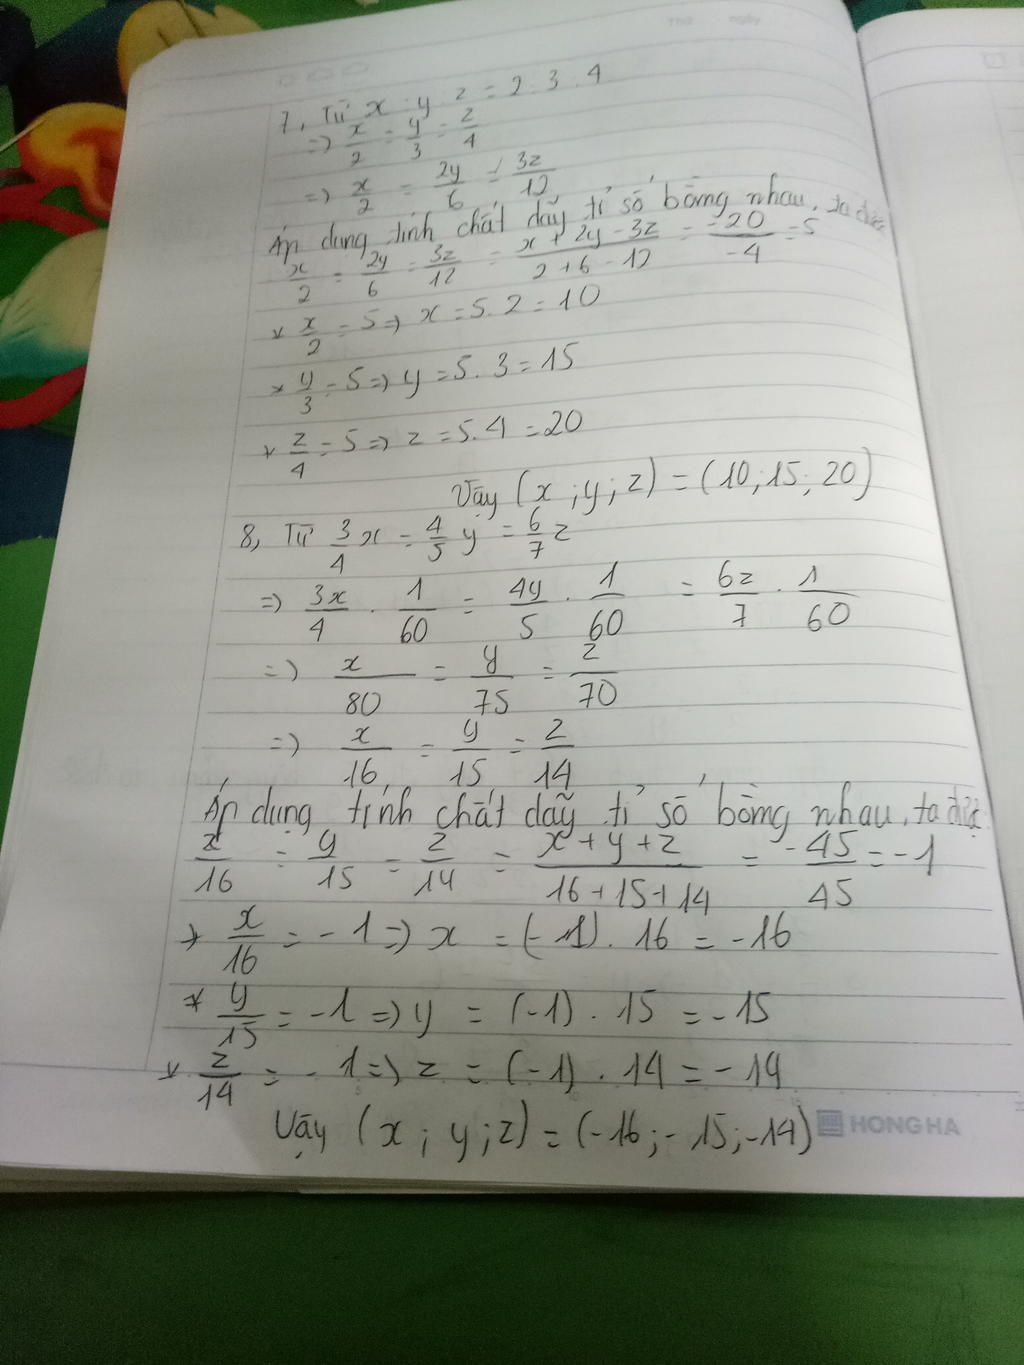 Thứ ngày
7, Từ x : y : z = 2 : 3 : 4
=> x/2 = y/3 = z/4
=> x/2 = 2y/6 = 3z/12
Áp dụng tính chất dãy tỉ số bằng nhau, ta được
x/2 = 2y/6 = 3z/12 = x + 2y - 3z/2 + 6 - 12 = -20/-4 = 5
* x/2 = 5 => x = 5. 2 = 10
* y/3 = 5 => y = 5. 3 = 15
* z/4 = 5 => z = 5. 4 = 20
Vậy (x ; y ; z) = (10; 15; 20)
8, Từ 3/4 x = 4/5 y = 6/7 z
=> 3x/4 . 1/60 = 4y/5 . 1/60 = 6z/7 . 1/60
=> x/80 = y/75 = z/70
=> x/16 = y/15 = z/14
Áp dụng tính chất dãy tỉ số bằng nhau, ta được
x/16 = y/15 = z/14 = x + y + z/16 + 15 + 14 = -45/45 = -1
* x/16 = -1 => x = (-1) . 16 = -16
* y/15 = -1 => y = (-1) . 15 = -15
* z/14 = -1 => z = (-1) . 14 = -14
Vậy (x ; y ; z) = (-16; -15; -14)
HONG HA